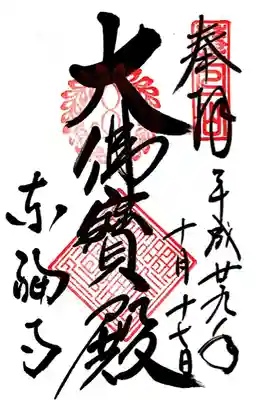 奉拝
平成廿九年
十月十七日
大佛寶殿
东福寺